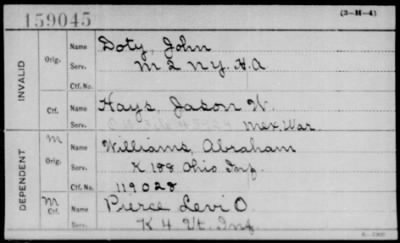 159045
(3-H-4)
INVALID
Orig.
Name Doty, John
Serv. M 2 N.Y. H.A
Ctf. No.
Ctf.
Name Hays, Jason W.
Serv. Mex. War.
DEPENDENT
M
Orig.
Name Williams, Abraham
Serv. K 188 Ohio Inf.
Ctf. No. 119028
M
Ctf.
Name Pierce Levi O
Serv. K 4 Vt. Inf.